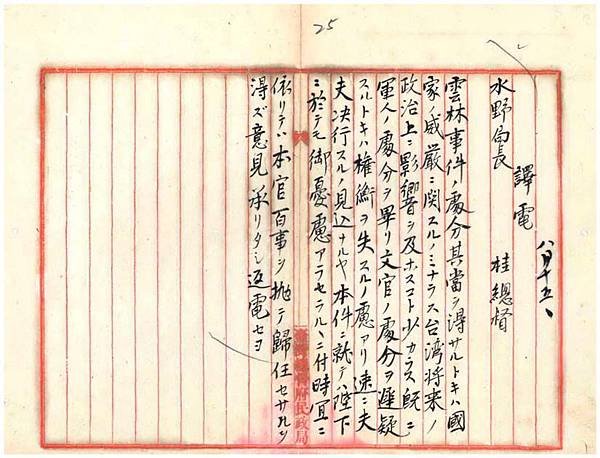 25
八月十五、
譯電
水野局長　桂總督
雲林事件ノ處分其當ヲ得サルトキハ國
家ノ威嚴ニ関スルノミナラス台湾将来ノ
政治上ニ影響ヲ及ホスコト少カラス既ニ
軍人ノ處分ヲ畢リ文官ノ處分ヲ遲疑
スルトキハ権衡ヲ失スルノ慮アリ速ニ夫
夫决行スルノ見込ナルヤ本件ニ就テハ陛下
ニ於テモ御憂慮アラセラルヽニ付時冝ニ
依リテハ本官百事ヲ抛テ歸任セサルヲ
得ズ意見承リタシ返電セヨ
臺灣總督府民政局